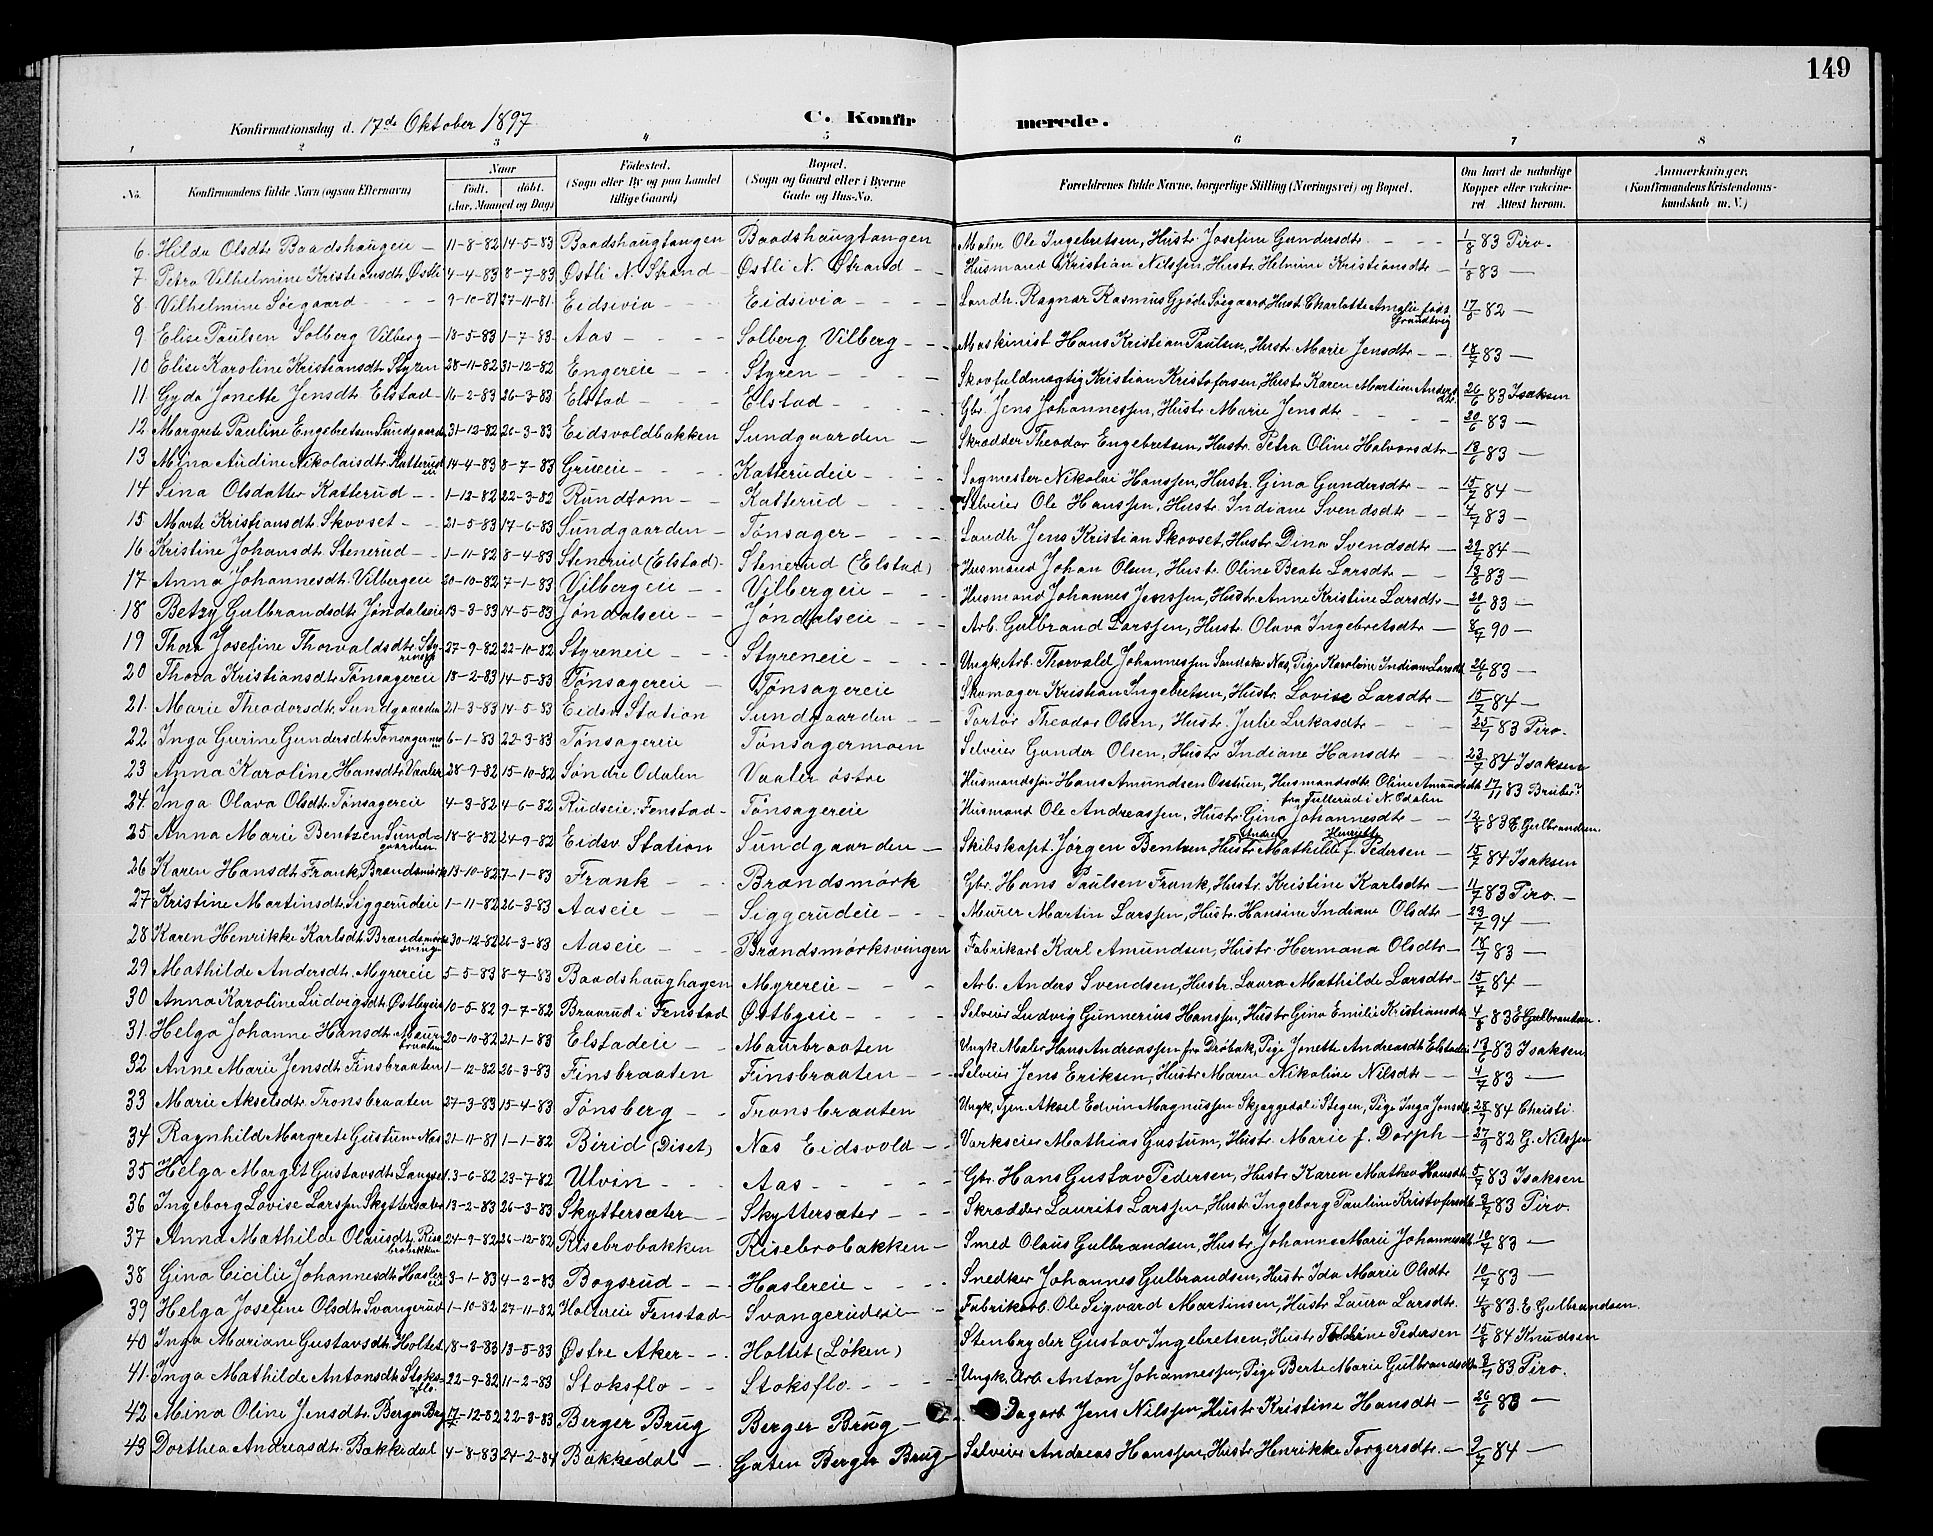 149
Konfirmationsdag d. 17de Oktober 1897
C. Konfirmerede.
1 2 3 4 5 6 7 8
No. | Konfirmandens fulde Navn (ogsaa Efternavn) | Naar født. døbt. (Aar, Maaned og Dag) | Fødested. (Sogn eller By og paa Landet tillige Gaard) | Bopæl. (Sogn og Gaard eller i Byerne Gade og Hus-No. | Forældrenes fulde Navne, borgerlige Stilling (Næringsvei) og Bopæl. | Om havt de naturlige Kopper eller vakcineret Attest herom. | Anmærkninger, (Konfirmandens Kristendomskundskab m. V.)
6. Hilda Olsdtr Baadshaugeie – 11-8-82 14-5-83 Baadshaugtangen Baadshaugtangen Maler Ole Ingebretsen, Hustr. Josefine Gundersdtr. 1/8 83 Piro.
7. Petra Vilhelmine Kristiansdtr. Østli 4-4-83 8-7-83 Østli N. Strand Østli N. Strand Husmand Kristian Nilssen, Hustr. Helmine Kristiansdtr – 1/8 83 –
8. Vilhelmine Søegaard 9-10-81 27-11-81 Eidsivia Eidsivia Landh. Ragnar Rasmus Gjøde Søegaard, Hust. Charlotte Amalie født Grundtvig 17/6 82 –
9. Elise Paulsen Solberg Vilberg – 18-5-83 1-7-83 Aas Solberg Vilberg Maskinist Hans Kristian Paulsen, Hustr. Marie Jensdtr – 18/7 83 –
10 Elise Karoline Kristiansdtr Styren 28-11-82 31-12-82 Engereie Styren Skovfuldmægtig Kristian Kristofersen, Hustr Karen Martine Andersdtr. 26/6 83 Isaksen
11. Gyda Jonette Jensdtr Elstad 16-2-83 26-3-83 Elstad Elstad Gbr. Jens Johannessen, Hustr Marie Jensdtr 20/6 83 –
12 Margrete Pauline Engebretsen Sundgaarden 31-12-82 26-3-83 Eidsvoldbakken Sundgaarden Skrædder Theodor Engebretsen, Hustr. Petra Oline Halvorsdtr 13/6 83 –
13 Mina Audine Nikolaisdtr. Katterudeie 14-4-83 8-7-83 Grueeie Katterudeie Sagmester Nikolai Hanssen, Hustr. Gina Gundersdtr 15/7 84 –
14 Sina Olsdatter Katterud 1-12-82 22-3-82 Rundtom Katterud Selveier Ole Hanssen, Hustr. Indiane Svendsdtr 4/7 83 –
15 Marte Kristiansdtr. Skovset 21-5-83 17-6-83 Sundgaarden Tønsager Landh. Jens Kristian Skovset, Hustr Dina Svendsdtr 29/7 84 –
16 Kristine Johansdtr. Stenerud 1-11-82 8-4-83 Stenerud (Elstad) Stenerud (Elstad) Husmand Johan Olsen, Hustr. Oline Beate Larsdtr 13/6 83 –
17 Anna Johannesdtr. Vilbergeie 20-10-82 7-1-83 Vilbergeie Vilbergeie Husmand Johannes Jenssen, Hustr Anne Kristine Larsdtr 20/6 83 –
18 Betzy Gulbrandsdtr. Jøndalseie 13-3-83 14-5-83 Jøndalseie Jøndalseie Arb. Gulbrand Larssen, Hustr. Olava Ingebretsdtr 8/7 90 –
19 Thora Josefine Thorvaldsdtr. Styreneie 27-9-82 22-10-82 Styreneie Styreneie Ungk. Arb. Thorvald Johannessen Sandaker Nes, Pige Karoline Indiane Larsdtr 26/6 83 –
20 Thora Kristiansdtr. Tønsagereie 18-2-83 14-5-83 Tønsagereie Tønsagereie Skomager Kristian Ingebretsen, Hustr. Lovise Larsdtr 15/7 84 –
21. Marie Theodorsdtr. Sundgaarden 21-3-83 14-5-83 Eidsv Station Sundgaarden Portør Theodor Olsen, Hustr. Julie Lukasdtr 25/7 83 Piro.
22 Inga Gurine Gundersdtr. Tønsagermoen 6-1-83 22-3-83 Tønsagereie Tønsagermoen Selveier Gunder Olsen, Hustr. Indiane Hansdtr 23/7 84 Isaksen
23 Anna Karoline Hansdtr. Vaaler 28-9-82 15-10-82 Søndre Odalen Vaaler østre Husmandssøn Hans Amundsen Osstuen, Husmandsdtr. Oline Amundsdtr fra Fullerud i N. Odalen 17/11 83
24. Inga Olava Olsdtr. Tønsagereie 4-3-82 4-6-82 Rudseie Fenstad Tønsagereie Husmand Ole Andreassen, Hustr. Gina Johannesdtr 12/8 83 E. Gulbrandsen.
25 Anna Marie Bentzen Sundgaarden 18-8-82 24-9-82 Eidsv Station Sundgaarden Skibskapt. Jørgen Bentzen, Hustr Mathilde Henriette f. Pedersen 15/7 84 Isaksen
26 Karen Hansdtr Frank, Brændsmørk 13-10-82 7-1-83 Frank Brændsmørk Gbr. Hans Paulsen Frank, Hustr. Kristine Karlsdtr 11/7 83 Piro.
27 Kristine Martinsdtr. Siggerudeie 1-11-82 26-3-83 Aaseie Siggerudeie Murer Martin Larssen, Hustr. Hansine Indiane Olsdtr 23/7 94 –
28 Karen Henrikke Karlsdtr. Brændsmørksvingen 30-12-82 26-3-83 Aaseie Brændsmørksvingen Fabrikarb Karl Amundsen, Hustr Hermana Olsdtr 18/7 83 –
29 Mathilde Andersdtr. Myrereie 5-5-83 8-7-83 Baadshaughagen Myrereie Arb. Anders Svendsen, Hustr. Laura Mathilde Larsdtr 15/7 84 –
30 Anna Karoline Ludvigsdtr. Østbyeie 10-5-82 9-7-82 Braarud i Fenstad Østbyeie Selveier Ludvig Gunnerius Hanssen, Hustr Gina Emilie Kristiansdtr 4/8 83 E Gulbrandsen.
31. Helga Johanne Hansdtr. Maurbraaten 20-10-82 21-1-83 Elstadeie Maurbraaten Ungk. Maler Hans Andreassen fra Drøbak, Pige Jonette Andreasdtr Elstadeie 13/6 83 Isaksen
32 Anne Marie Jensdtr Finsbraaten 1-12-82 26-3-83 Finsbraaten Finsbraaten Selveier Jens Eriksen, Hustr Maren Nikoline Nilsdtr 4/7 83 –
33 Marie Akselsdtr. Tronsbraaten 27-3-83 15-4-83 Tønsberg Tronsbraaten Ungk. Tjen. Aksel Edvin Magnussen Skjæggedal i Stigen, Pige Inga Jonsdtr 28/7 84 Christi.
34 Ragnhild Margrete Gustum Nes 21-11-81 1-1-82 Birid (Diset) Nes Eidsvold Værkseier Mathias Gustum, Hustr. Marie f. Dorph 27/9 82 G. Nilssen
35 Helga Margit Gustavsdtr. Langset 3-6-82 23-7-82 Utvin Aas Gbr. Hans Gustav Pedersen, Hustr Karen Mathea Hansdtr 5/7 83 Isaksen
36 Ingeborg Lovise Larssen Skyttersæter 13-2-83 26-3-83 Skyttersæter Skyttersæter Skrædder Laurits Larssen, Hustr Ingeborg Pauline Kristofersdtr 3/7 83 Piro.
37 Anna Mathilde Olausdtr. Risebrobakken 24-9-82 26-12-82 Risebrobakken Risebrobakken Smed Olaus Gulbrandsen, Hustr Johanne Marie Johannesdtr 12/7 83 –
38 Gina Cicilie Johannesdtr. Haslereie 3-1-83 4-2-83 Bogsrud Haslereie Snedker Johannes Gulbrandsen, Hustr Ida Marie Olsdtr 10/7 83 –
39 Helga Josefine Olsdtr. Svangerud 1-10-82 27-11-82 Holtereie Fenstad Svangerudeie Fabrikarb. Ole Sigvard Martinsen, Hustr Laura Larsdtr. 4/8 83. E Gulbrandsen.
40 Inga Mariane Gustavsdtr. Holtet 18-3-83 13-5-83 Østre Aker Holtet (Løken) Stenbryder Gustav Ingebretsen, Hustr Pedersen 15/8 84 Knudsen
41. Inga Mathilde Antonsdtr Stoksflo. 22-9-82 11-2-83 Stoksflo Stoksflo. Ungk. Arb. Anton Johannessen, Pige Berte Marie Gulbrandsdtr 3/7 83 Piro.
42 Mina Oline Jensdtr. Berger Brug 17-12-82 22-3-83 Berger Brug Berger Brug Dagarb Jens Nilssen, Hustr Kristine Hansdtr 26/6 83 –
43 Dorthea Andreasdtr. Bækkedal 4-8-83 24-2-84 Bækkedal Gaten Berger Brug Selveier Andreas Hanssen, Hustr Henrikke Torgersdtr. 9/7 84 –